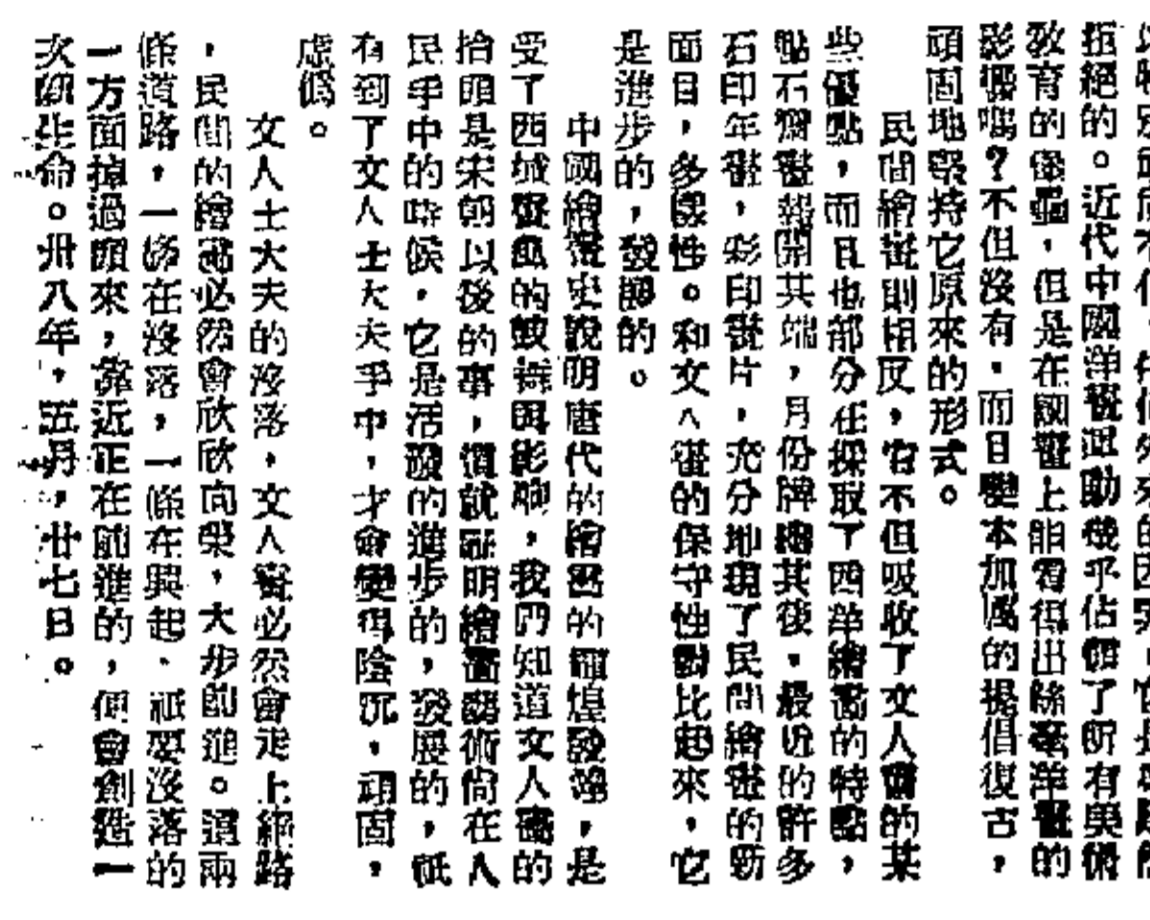 拒絕的。近代中國洋畫運動幾乎佔領了所有美術
敎育的堡壘,但是在國畫上能看得出絲毫洋畫的
影響嗎?不但沒有,而且變本加厲的提倡復古,
頑固地堅持它原來的形式。
民間繪畫則相反,它不但吸收了文人畫的某
些優點,而且也部分在採取了西洋繪畫的特點,
點石齋畫報開其端,月份牌繼其後,最近的許多
石印年畫,彩印畫片,充分地現了民間繪畫的新
面目,多樣性。和文人畫的保守性對比起來,它
是進步的,發展的。
中國繪畫史說明唐代的繪畫的輝煌發端,是
受了西域畫風的鼓舞與影响,我們知道文人畫的
抬頭是宋朝以後的事,慣就証明繪畫藝術尙在人
民手中的時候,它是活潑的進步的,發展的,祇
有到了文人士大夫手中,才會變得陰沉,頑固,
虛僞。
文人士大夫的沒落,文人畫必然會走上絕路
,民間的繪畫必然會欣欣向榮,大步前進。這兩
條道路,一條在沒落,一條在興起,祇要沒落的
一方面掉過頭來,靠近正在前進的,便會創造一
次新生命。卅八年,五月,廿七日。